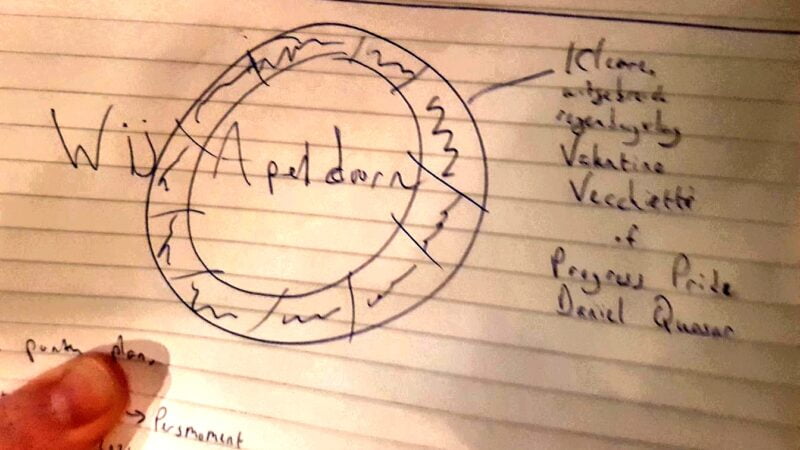 Wij Apeldoorn
Kleuren
uitgebreide
regenboogvlag
Valentino
Vecchietti
of
Progress Pride
Daniel Quasar
punten plan
→ Persmoment